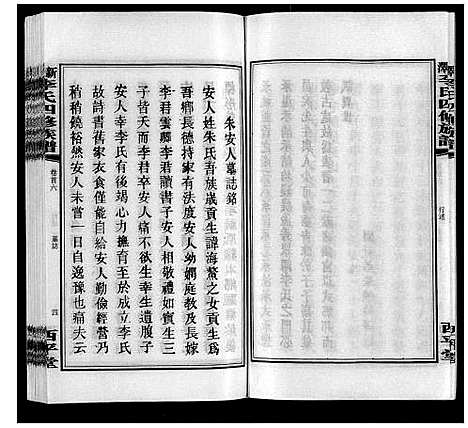 朱安人墓誌銘
安人姓朱氏吾族歲貢生諱海鰲之女貢生為
吾鄉長德持家有法度安人幼嫻庭教及長嫁
李君雲卿李君讀書子安人相敬禮如賓生三
子皆夭而李君卒安人痛不欲生幸生遺腹子
安人幸李氏有後竭心力撫育至於成立李氏
故詩書舊家衣食僅能自給安人勤儉經營乃
稍稍饒裕然安人未嘗一日自逸豫也痛夫云
李氏四修族譜
卷首六
墓誌
四
西平堂
李氏四修族譜
行述
西平堂